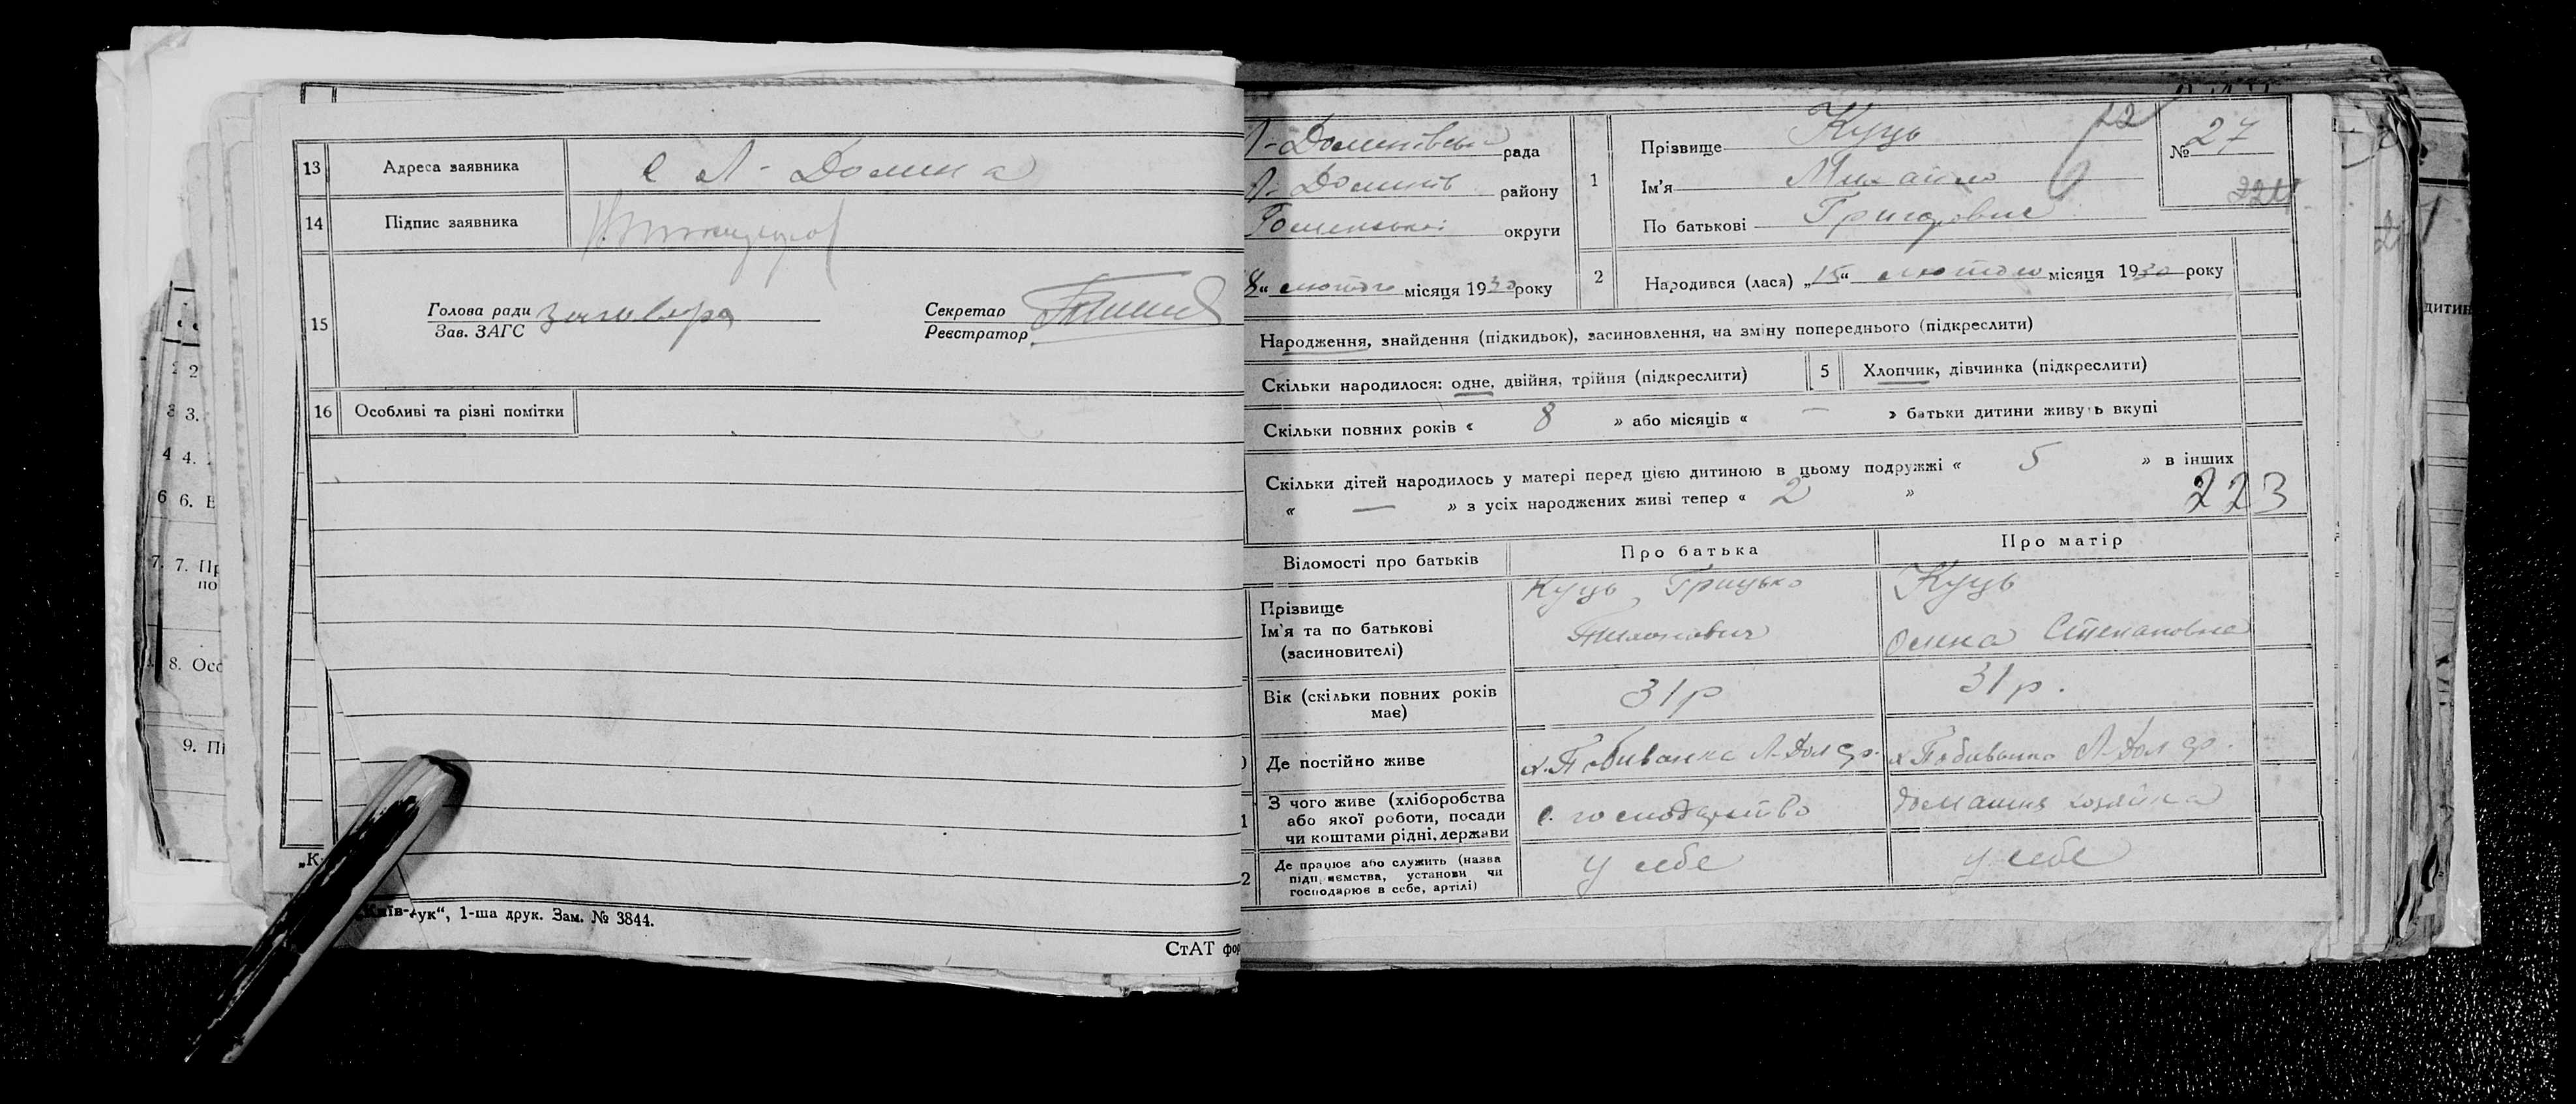 13 Адреса заявника с Л-Долина
14 Підпис заявника
15 Голова ради Зав. ЗАГС Секретар Реєстратор
16 Особливі та різні помітки
„Київ-Друк“, 1-ша друк. Зам. № 3844.
СтАТ фор
Л-Долинівська рада
Л-Долинів району
Роменської округи
8“ лютого місяця 1930 року
1 Прізвище Куць
Ім'я Михайло
По батькові Григорович
12
№ 27
224
2 Народився (лася) „15“ лютого місяця 1930 року
Народження, знайдення (підкидьок), засиновлення, на зміну попереднього (підкреслити)
Скільки народилося: одне, двійня, трійня (підкреслити) 5 Хлопчик, дівчинка (підкреслити)
Скільки повних років « 8 » або місяців « — » батьки дитини живуть вкупі
Скільки дітей народилось у матері перед цією дитиною в цьому подружжі « 5 » в інших
« — » з усіх народжених живі тепер « 2 »
223
Відомості про батьків Про батька Про матір
Прізвище Куць Грицько Куць
Ім'я та по батькові Степановна
(засиновителі)
Вік (скільки повних років має) 31р 31р.
Де постійно живе х. Побиванка Л-Дол ср. х Побиванка Л-Дол ср.
З чого живе (хліборобства або якої роботи, посади чи коштами рідні, держави с. господарство домашня хазяйка
Де працює або служить (назва підприємства, установи чи господарює в себе, артілі) у себе у себе
2
3 3.
4 4.
6 6.
7. 7. Пр
по
8. Осо
9. Пі
дитин